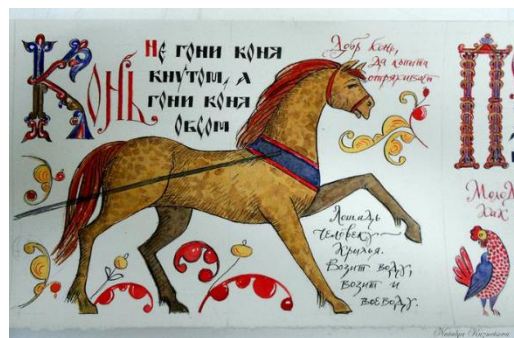 Конь
Не гони коня
кнутом, а
гони коня
овсом
Добр конь,
да копыта
отряхивает
Лошадь
человеку
крылья.
Возит воду,
возит и
воеводу.
П
Natalya Kuznetsova